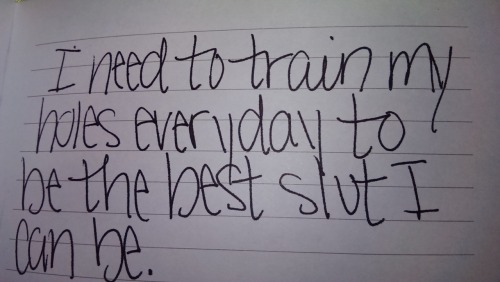 I need to train my
holes everyday to
be the best slut I
can be.